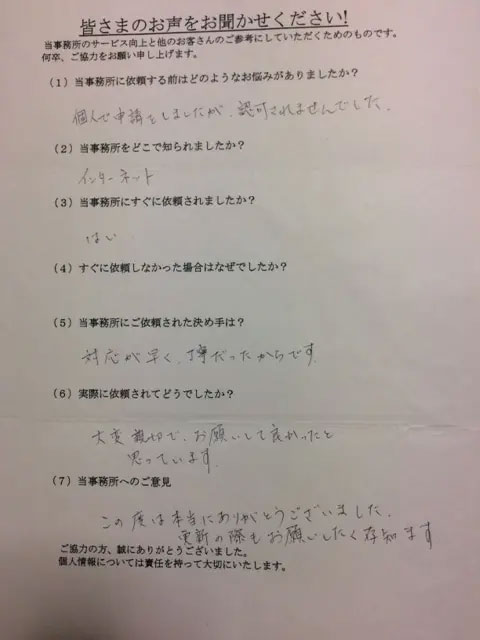 皆さまのお声をお聞かせください!
当事務所のサービス向上と他のお客さんのご参考にしていただくためのものです。
何卒、ご協力をお願い申し上げます。
(1)当事務所に依頼する前はどのようなお悩みがありましたか?
個人で申請をしましたが、認可されませんでした。
(2)当事務所をどこで知られましたか?
インターネット
(3)当事務所にすぐに依頼されましたか?
はい。
(4)すぐに依頼しなかった場合はなぜでしたか?
(5)当事務所にご依頼された決め手は?
対応が早く、丁寧だったからです。
(6)実際に依頼されてどうでしたか?
大変親切で、お願いして良かったと
思っています。
(7)当事務所へのご意見
この度は本当にありがとうございました。
更新の際もお願いしたく存知ます
ご協力の方、誠にありがとうございました。
個人情報については責任を持って大切にいたします。